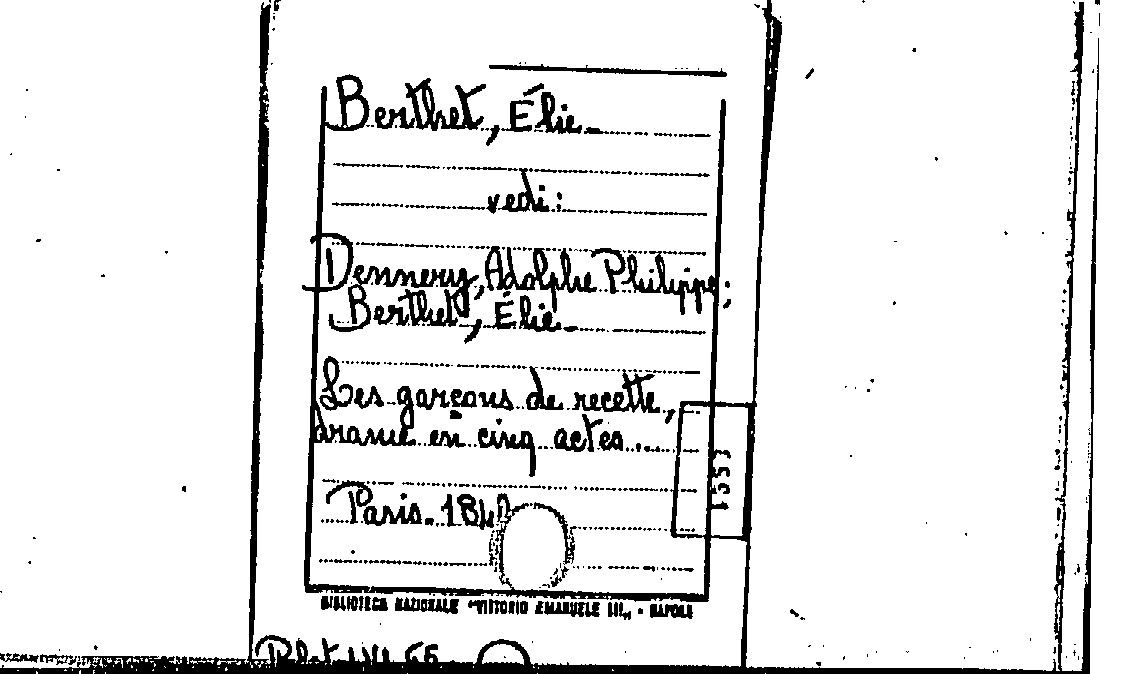 Berthet, Élie.
vedi:
Dennery, Adolphe Philippe;
Berthet, Élie.
Les garçons de recette,
drame en cinq actes...
Paris. 184
BIBLIOTECA NAZIONALE "VITTORIO EMANUELE III„ - NAPOLI